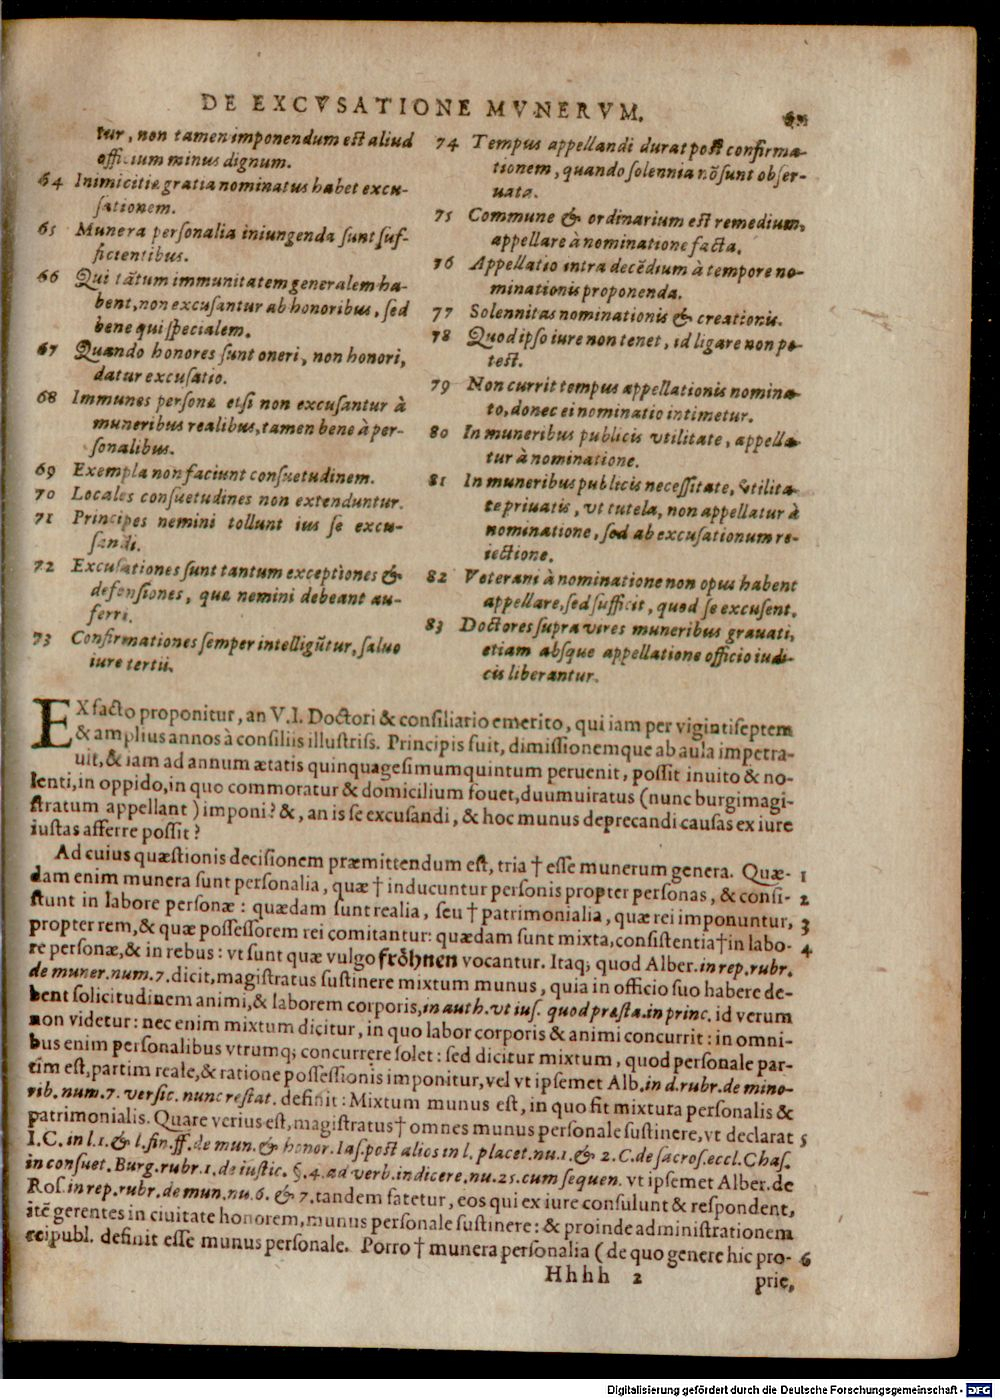 DE EXCVSATIONE MVNERVM.
tur, non tamen imponendum est aliud
officium minus dignum.
64 Inimicitiæ gratia nominatus habet excu-
sationem.
65 Munera personalia iniungenda sunt suf-
ficientibus.
66 Qui tātum immunitatem generalem ha-
bent, non excusantur ab honoribus, sed
bene qui specialem.
67 Quando honores sunt oneri, non honori,
datur excusatio.
68 Immunes personæ etsi non excusantur à
muneribus realibus, tamen bene à per-
sonalibus.
69 Exempla non faciunt consuetudinem.
70 Locales consuetudines non extenduntur.
71 Principes nemini tollunt ius se excu-
sandi.
72 Excusationes sunt tantum exceptiones &
defensiones, quæ nemini debeant au-
ferri.
73 Confirmationes semper intelligūtur, saluo
iure tertii.
74 Tempus appellandi durat post confirma-
tionem, quando solennia nō sunt obser-
uata.
75 Commune & ordinarium est remedium,
appellare à nominatione facta.
76 Appellatio intra decēdium à tempore no-
minationis proponenda.
77 Solennitas nominationis & creationis.
78 Quod ipso iure non tenet, id ligare non po-
test.
79 Non currit tempus appellationis nomina-
to, donec ei nominatio intimetur.
80 In muneribus publicis vtilitate, appella-
tur à nominatione.
81 In muneribus publicis necessitate, vtilita-
te priuatis, vt tutela, non appellatur à
nominatione, sed ab excusationum re-
iectione.
82 Veterani à nominatione non opus habent
appellare, sed sufficit, quod se excusent.
83 Doctores supra vires muneribus grauati,
etiam absque appellatione officio iudi-
cis liberantur.
EX facto proponitur, an V.I. Doctori & consiliario emerito, qui iam per vigintiseptem
& amplius annos à consiliis illustriss. Principis fuit, dimissionemque ab aula impetra-
uit, & iam ad annum ætatis quinquagesimumquintum peruenit, possit inuito & no-
lenti, in oppido, in quo commoratur & domicilium fouet, duumuiratus (nunc burgimagi-
stratum appellant) imponi? &, an is se excusandi, & hoc munus deprecandi causas ex iure
iustas afferre possit?
Ad cuius quæstionis decisionem præmittendum est, tria † esse munerum genera. Quæ- 1
dam enim munera sunt personalia, quæ † inducuntur personis propter personas, & consi- 2
stunt in labore personæ: quædam sunt realia, seu † patrimonialia, quæ rei imponuntur, 3
propter rem, & quæ possessorem rei comitantur: quædam sunt mixta, consistentia † in labo- 4
re personæ, & in rebus: vt sunt quæ vulgo fröhnen vocantur. Itaq; quod Alber. in rep. rubr.
de muner. num. 7. dicit, magistratus sustinere mixtum munus, quia in officio suo habere de-
bent solicitudinem animi, & laborem corporis, in auth. vt ius. quod præsta. in princ. id verum
non videtur: nec enim mixtum dicitur, in quo labor corporis & animi concurrit: in omni-
bus enim personalibus vtrumq; concurrere solet: sed dicitur mixtum, quod personale par-
tim est, partim reale, & ratione possessionis imponitur, vel vt ipsemet Alb. in d. rubr. de mino-
rib. num. 7. versic. nunc restat. definit: Mixtum munus est, in quo fit mixtura personalis &
patrimonialis. Quare verius est, magistratus † omnes munus personale sustinere, vt declarat 5
I.C. in l. 1. & l. fin. ff. de mun. & honor. Ias. post alios in l. placet. nu. 1. & 2. C. de sacros. eccl. Chas.
in consuet. Burg. rubr. 1. de iustic. §. 4. ad verb. indicere. nu. 25. cum sequen. vt ipsemet Alber. de
Ros. in rep. rubr. de mun. nu. 6. & 7. tandem fatetur, eos qui ex iure consulunt & respondent,
itē gerentes in ciuitate honorem, munus personale sustinere: & proinde administrationem
reipubl. definit esse munus personale. Porro † munera personalia (de quo genere hic pro- 6
Hhhh 2
prie,
Digitalisierung gefördert durch die Deutsche Forschungsgemeinschaft - DFG